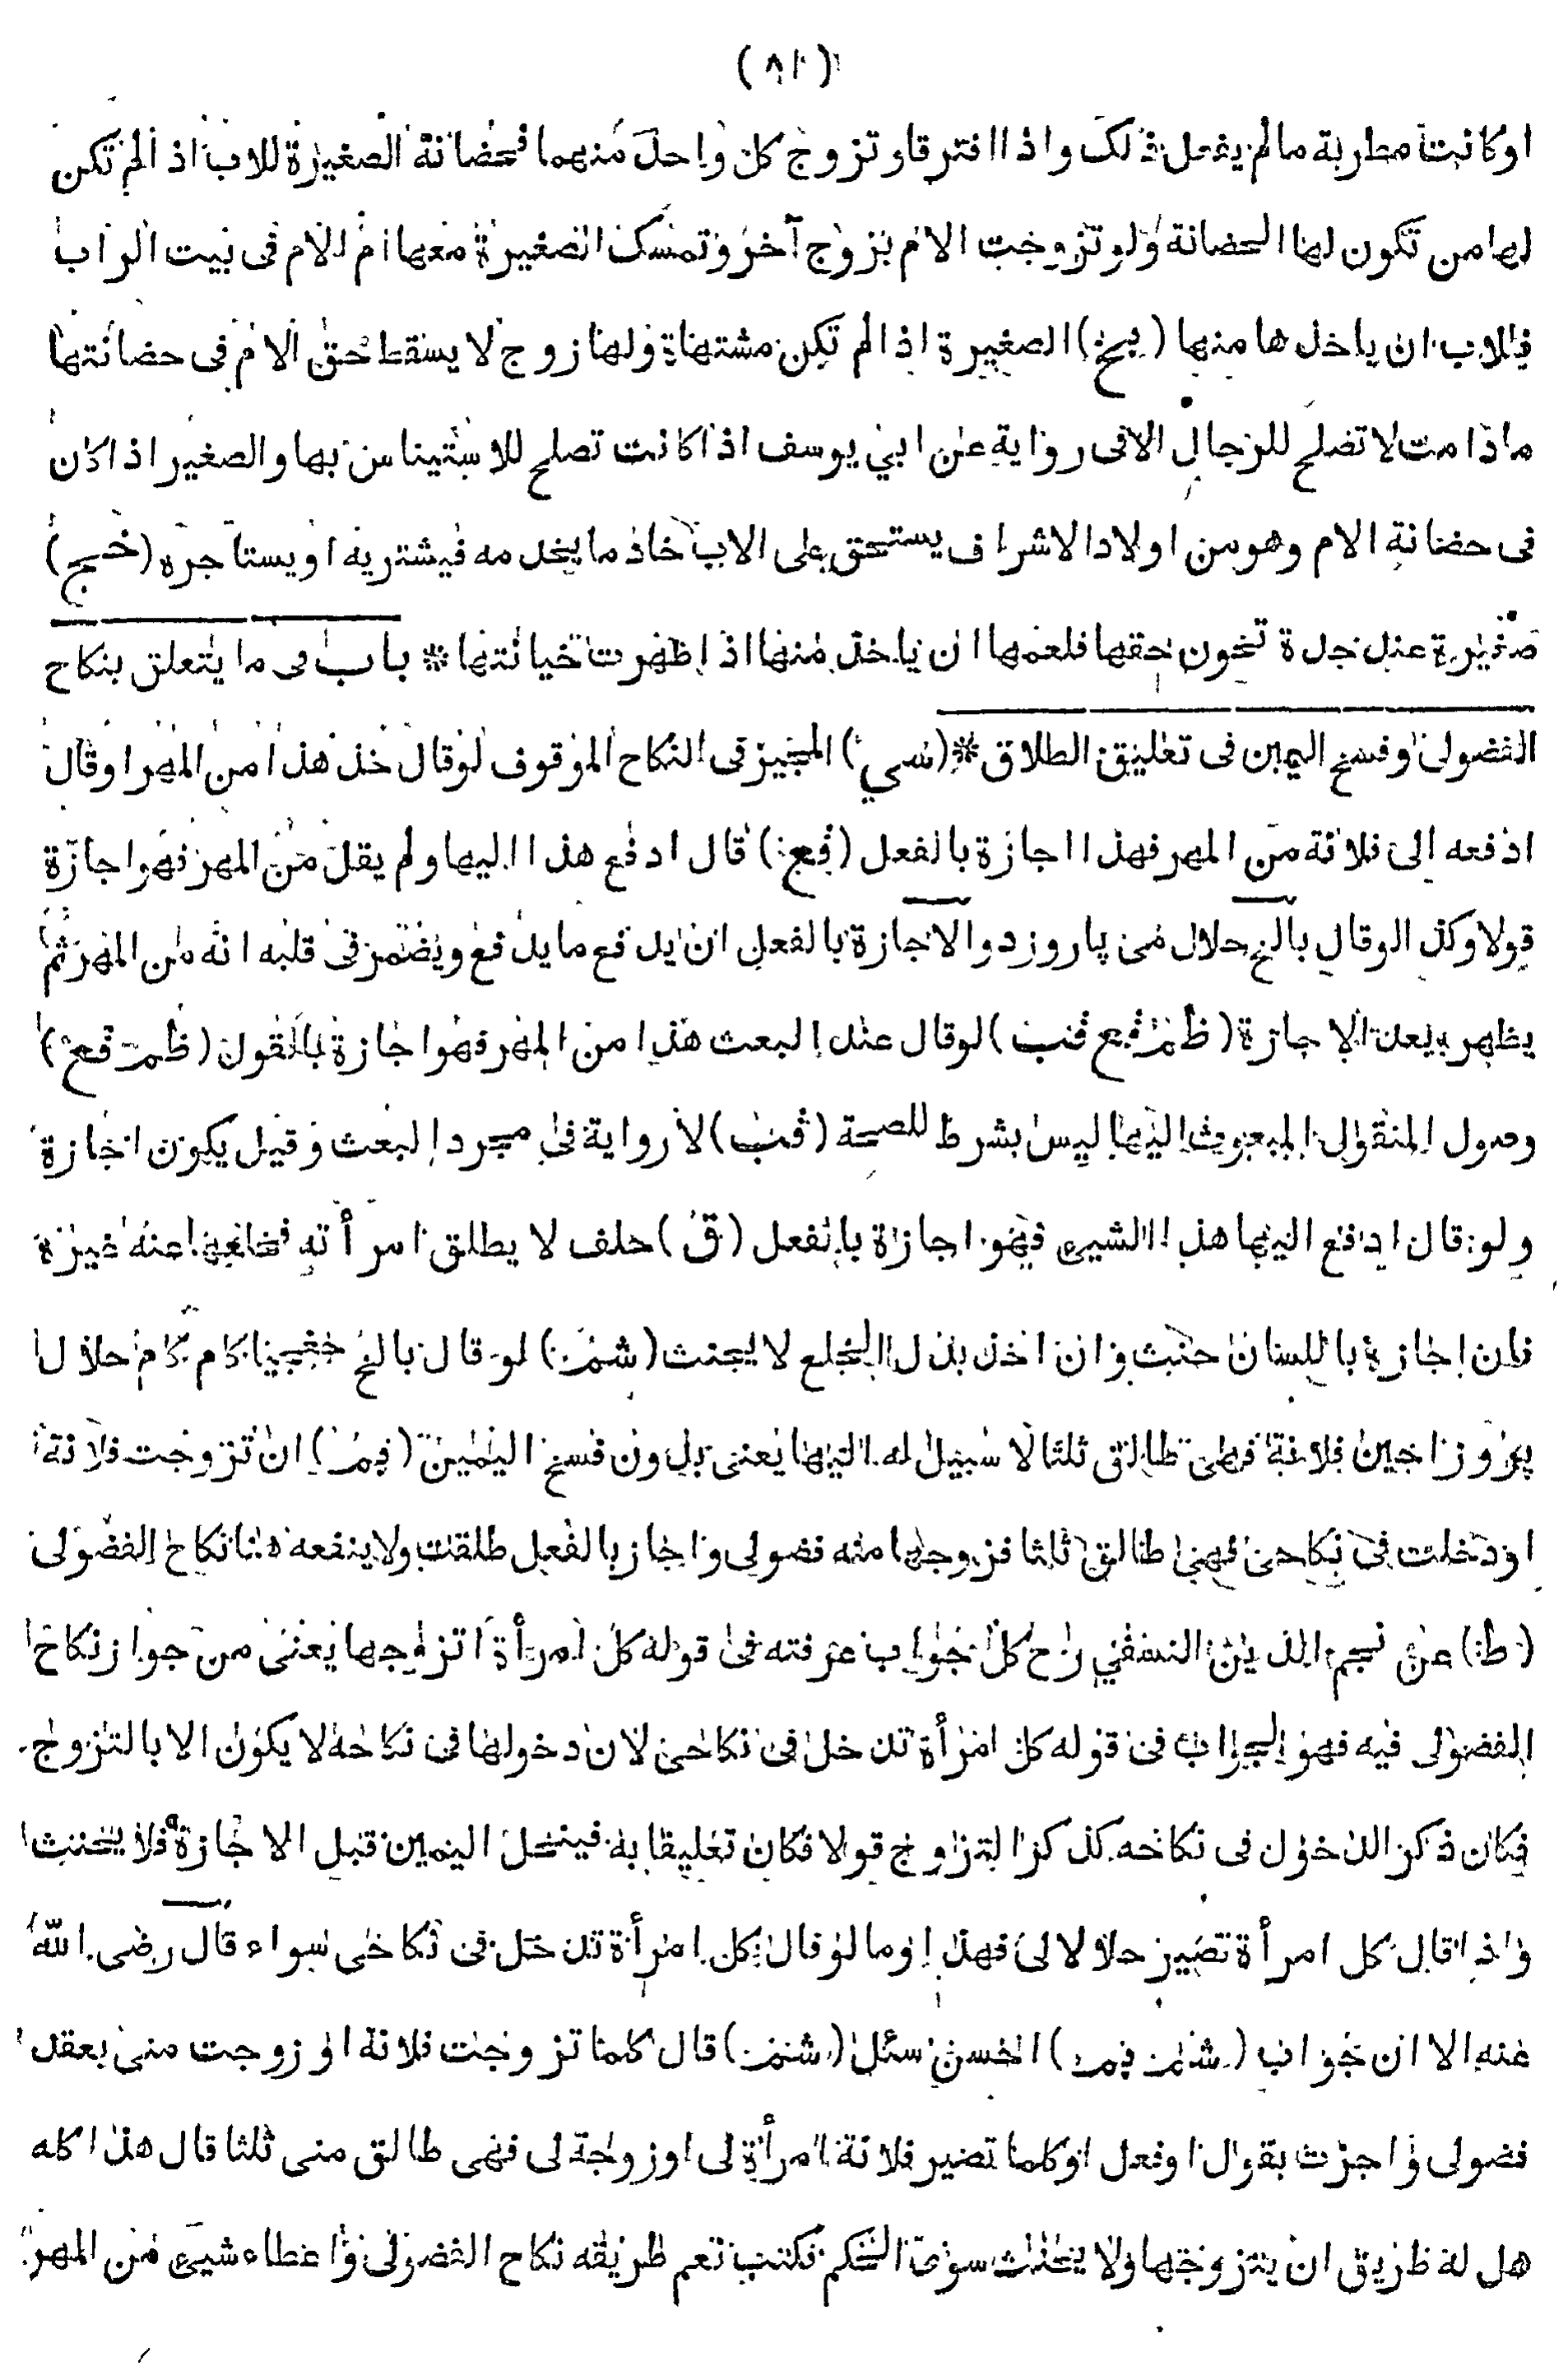 (٨١)
او كانت مطربة ما لم يفعل ذلك واذا افترقا وتزوج كل واحد منهما فحضانة الصغيرة للاب اذا لم تكن
لها من تكون لها الحضانة ولو تزوجت الام بزوج آخر وتمسك الصغيرة معها ام الام فى بيت الراب
فللاب ان ياخذها منها (بخ) الصغيرة اذا لم تكن مشتهاة ولها زوج لا يسقط حق الام فى حضانتها
ما دامت لا تصلح للرجال الا فى رواية عن ابي يوسف اذا كانت تصلح للاستيناس بها والصغير اذا كان
فى حضانة الام وهو من اولاد الاشراف يستحق على الاب خادما يخدمه فيشتريه او يستاجره (خج)
صغيرة عند جدة تخون حقها فلعمها ان ياخذ منها اذا ظهرت خيانتها * باب فى ما يتعلق بنكاح
الفضولى وفسخ اليمين فى تعليق الطلاق * (سي) المجيز فى النكاح الموقوف لو قال خذ هذا من المهر او قال
ادفعه الى فلانة من المهر فهذا اجازة بالفعل (فع) قال ادفع هذا اليها ولم يقل من المهر فهو اجازة
قولا وكذا لو قال بالخ حلال مى پاروزد والاجازة بالفعل ان يدفع ما يدفع ويضمر فى قلبه انه من المهر ثم
يظهر بعد الاجازة (ظم فع فب) لو قال عند البعث هذا من المهر فهو اجازة بالقول (ظم فع)
وصول المنقول المبعوث اليها ليس بشرط للصحة (فب) لا رواية فى مجرد البعث وقيل يكون اجازة
ولو قال ادفع اليها هذا الشيئ فهو اجازة بالفعل (ق) حلف لا يطلق امرأته فخالعها عنه غيره
فان اجازه باللسان حنث وان اخذ بدل الخلع لا يحنث (شم) لو قال بالخ كام كام حلال
فلانة فهى طالق ثلثا لا سبيل له اليها يعنى بدون فسخ اليمين (فم) ان تزوجت فلانة
او دخلت فى نكاحى فهى طالق ثلثا فزوجها منه فضولى واجاز بالفعل طلقت ولا ينفعه هنا نكاح الفضولى
(ط) عن نجم الدين النسفي رح كل جواب عرفته فى قوله كل امرأة اتزوجها يعنى من جواز نكاح
الفضولى فيه فهو الجواب فى قوله كل امرأة تدخل فى نكاحى لان دخولها فى نكاحه لا يكون الا بالتزوج
فكان ذكر الدخول فى نكاحه كذكر التزوج قولا فكان تعليقا به فينحل اليمين قبل الاجازة فلا يحنث
واذا قال كل امرأة تصير حلالا لى فهذا وما لو قال كل امرأة تدخل فى نكاحى سواء قال رضى الله
عنه الا ان جواب (شم فم) احسن سئل (شم) قال كلما تزوجت فلانة او زوجت منى بعقد
فضولى واجزت بقول او فعل او كلما تصير فلانة امرأة لى او زوجة لى فهى طالق منى ثلثا قال هذا كله
هل له طريق ان يتزوجها ولا يحنث سوى الحكم فكتب نعم طريقه نكاح الفضولى واعطاء شيئ من المهر